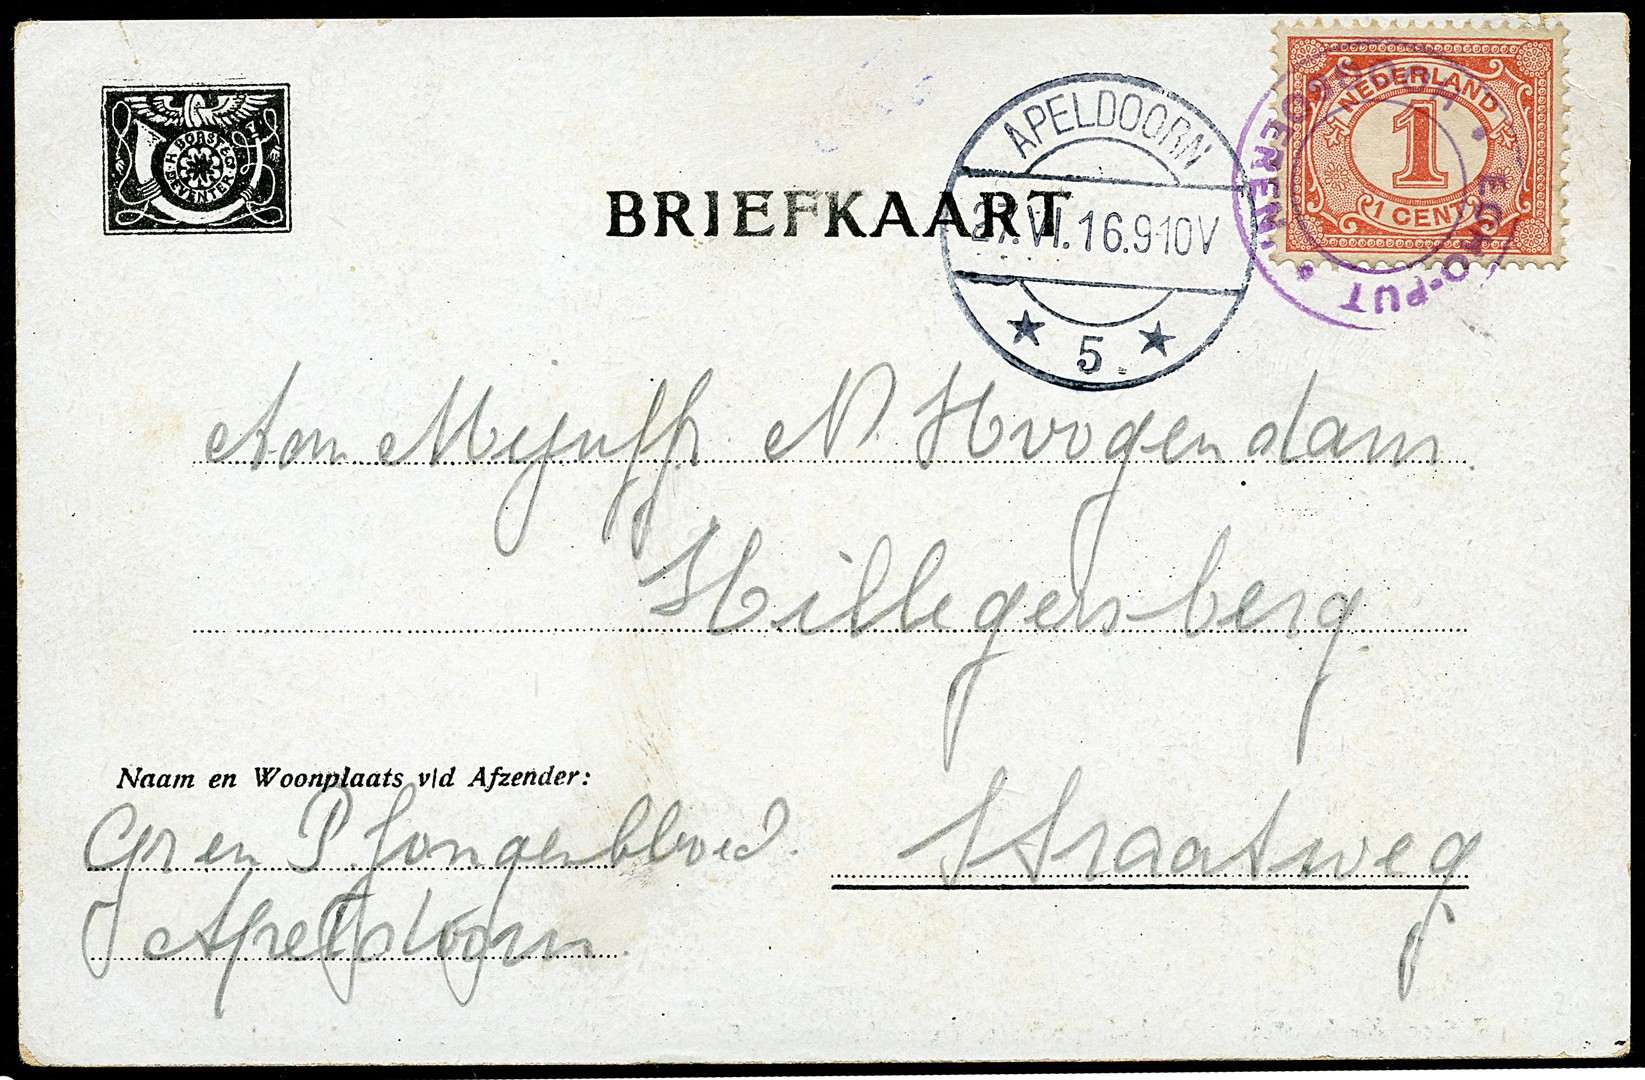 H. BORST & Co
DEVENTER
BRIEFKAART
APELDOORN
27.VI.16.9-10V
5
NEDERLAND
1
1 CENT
EEREN.
PUT
Aan Mejuffr. N. Hoogendam
Hillegersberg
Straatweg
Naam en Woonplaats v/d Afzender:
Gr en P. Jongenbloed.
Apeldoorn.